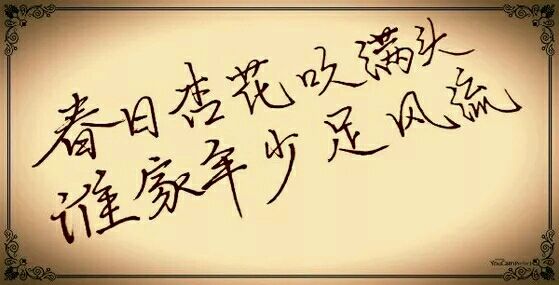 春日杏花吹满头
谁家年少足风流
YouCam Perfect